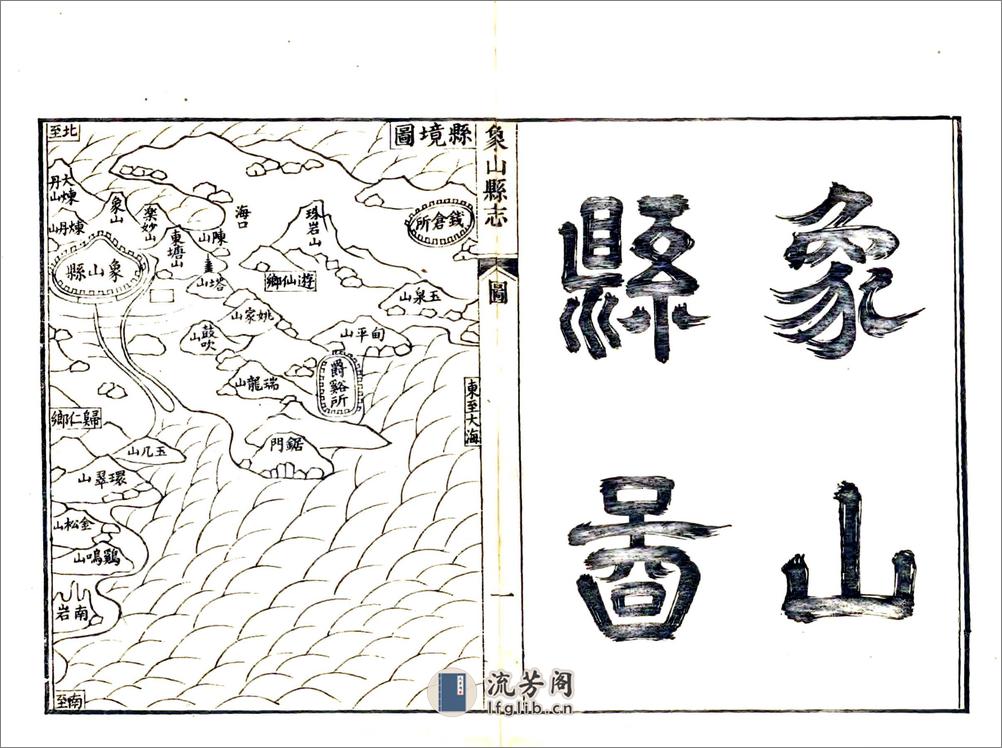 象山
縣啚
象山縣志
圖
一
縣境圖
北至
大煉丹山
煉丹山
象山
楽妙山
東塘山
陳山
海口
珠岩山
錢倉所
象山縣
塔山
遊仙鄉
玉泉山
姚家山
鼓吹山
旬平山
爵谿所
瑞龍山
東至大海
歸仁鄉
五几山
鋸門
環翠山
金松山
鷄鳴山
南岩
南至
流芳阁
lfglib.cn